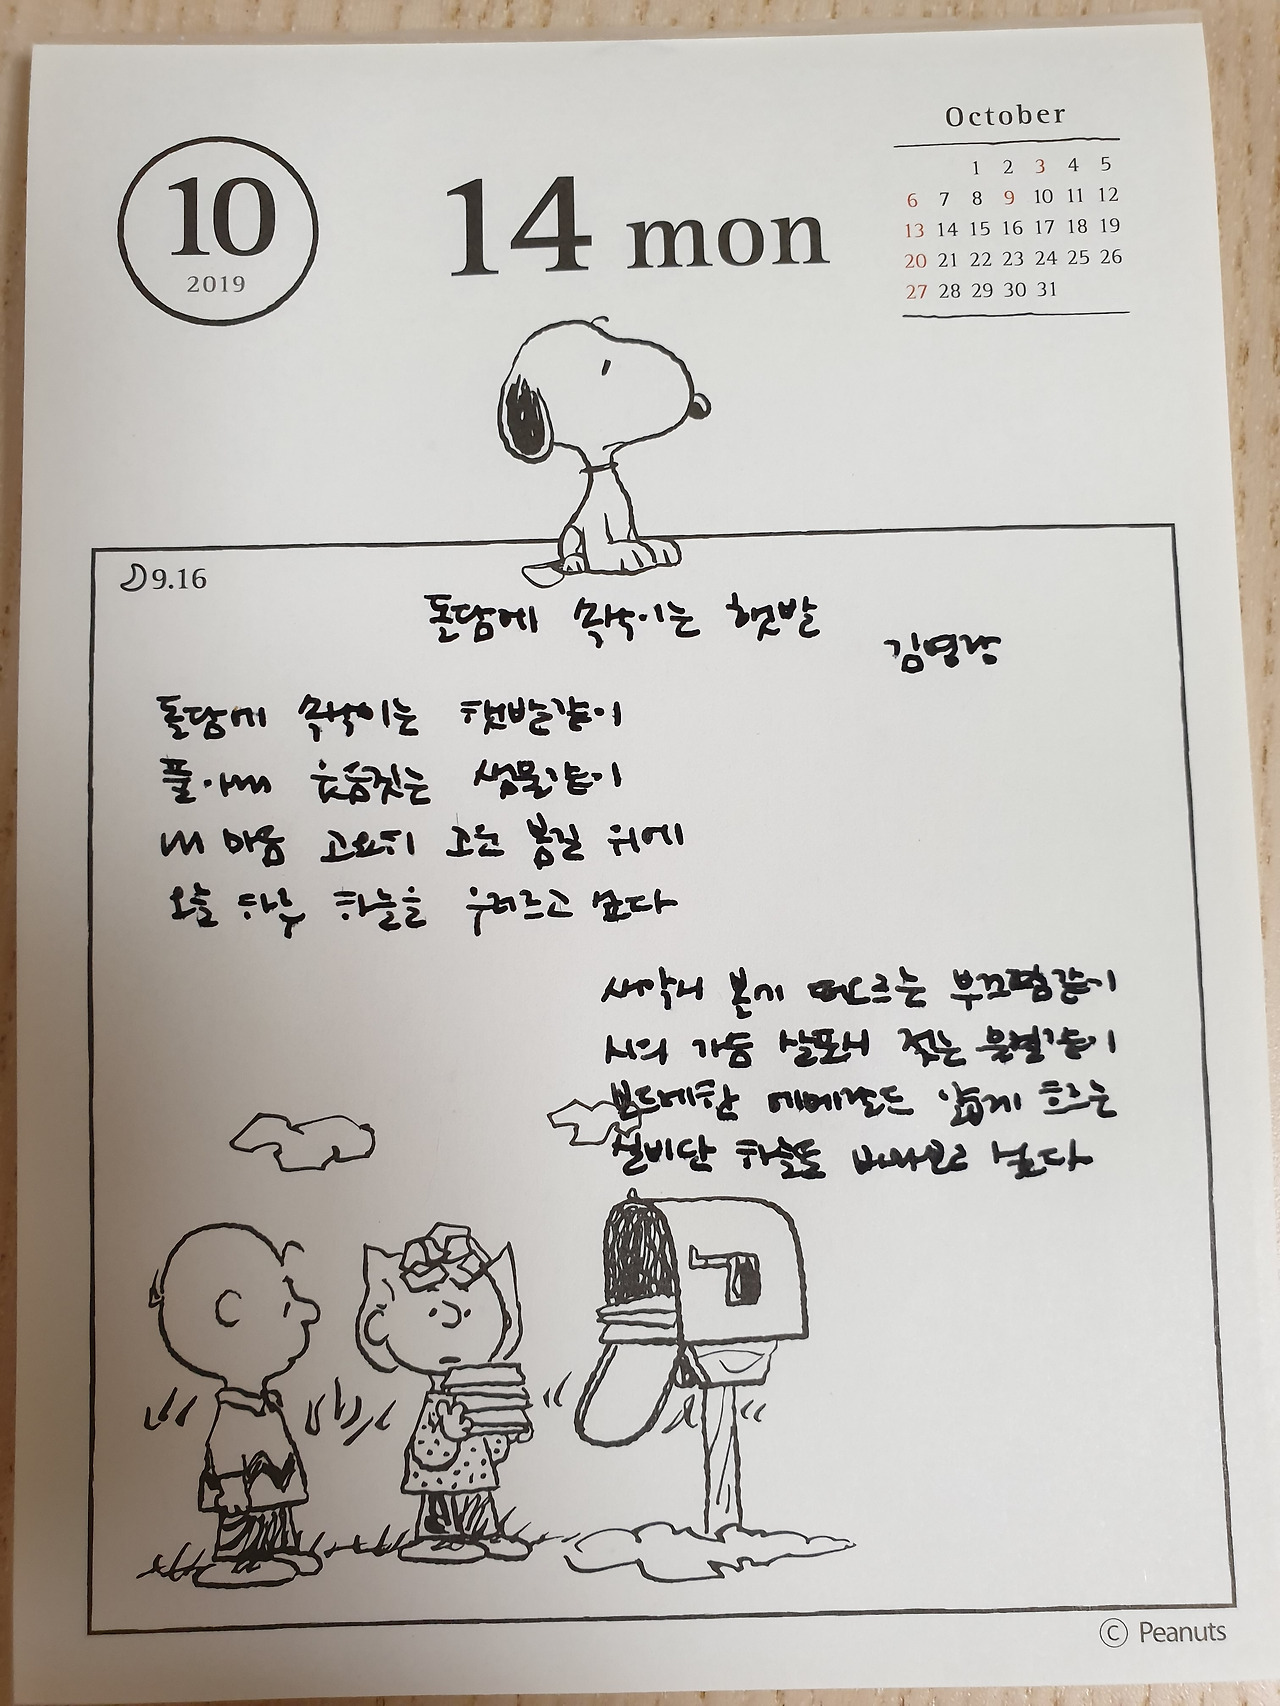 10
2019
14 mon
October
1 2 3 4 5
6 7 8 9 10 11 12
13 14 15 16 17 18 19
20 21 22 23 24 25 26
27 28 29 30 31
9.16
돌담에 속삭이는 햇발
김영랑
돌담에 속삭이는 햇발같이
풀아래 웃음짓는 샘물같이
내 마음 고요히 고운 봄길 위에
오늘 하루 하늘을 우러르고 싶다
새악시 볼에 떠오르는 부끄럼같이
시의 가슴 살포시 젖는 물결같이
보드레한 에메랄드 얇게 흐르는
실비단 하늘을 바라보고 싶다
© Peanuts